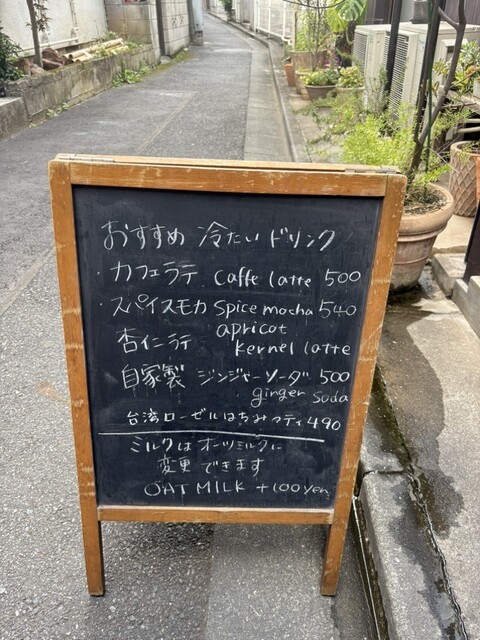 おすすめ 冷たい ドリンク
・カフェラテ caffe latte 500
・スパイスモカ spice mocha 540
杏仁ラテ apricot
kernel latte
自家製 ジンジャーソーダ 500
ginger suda
台湾ローゼルはちみつティ 490
ミルクは オーツミルクに
変更 できます
OAT MILK +100yen